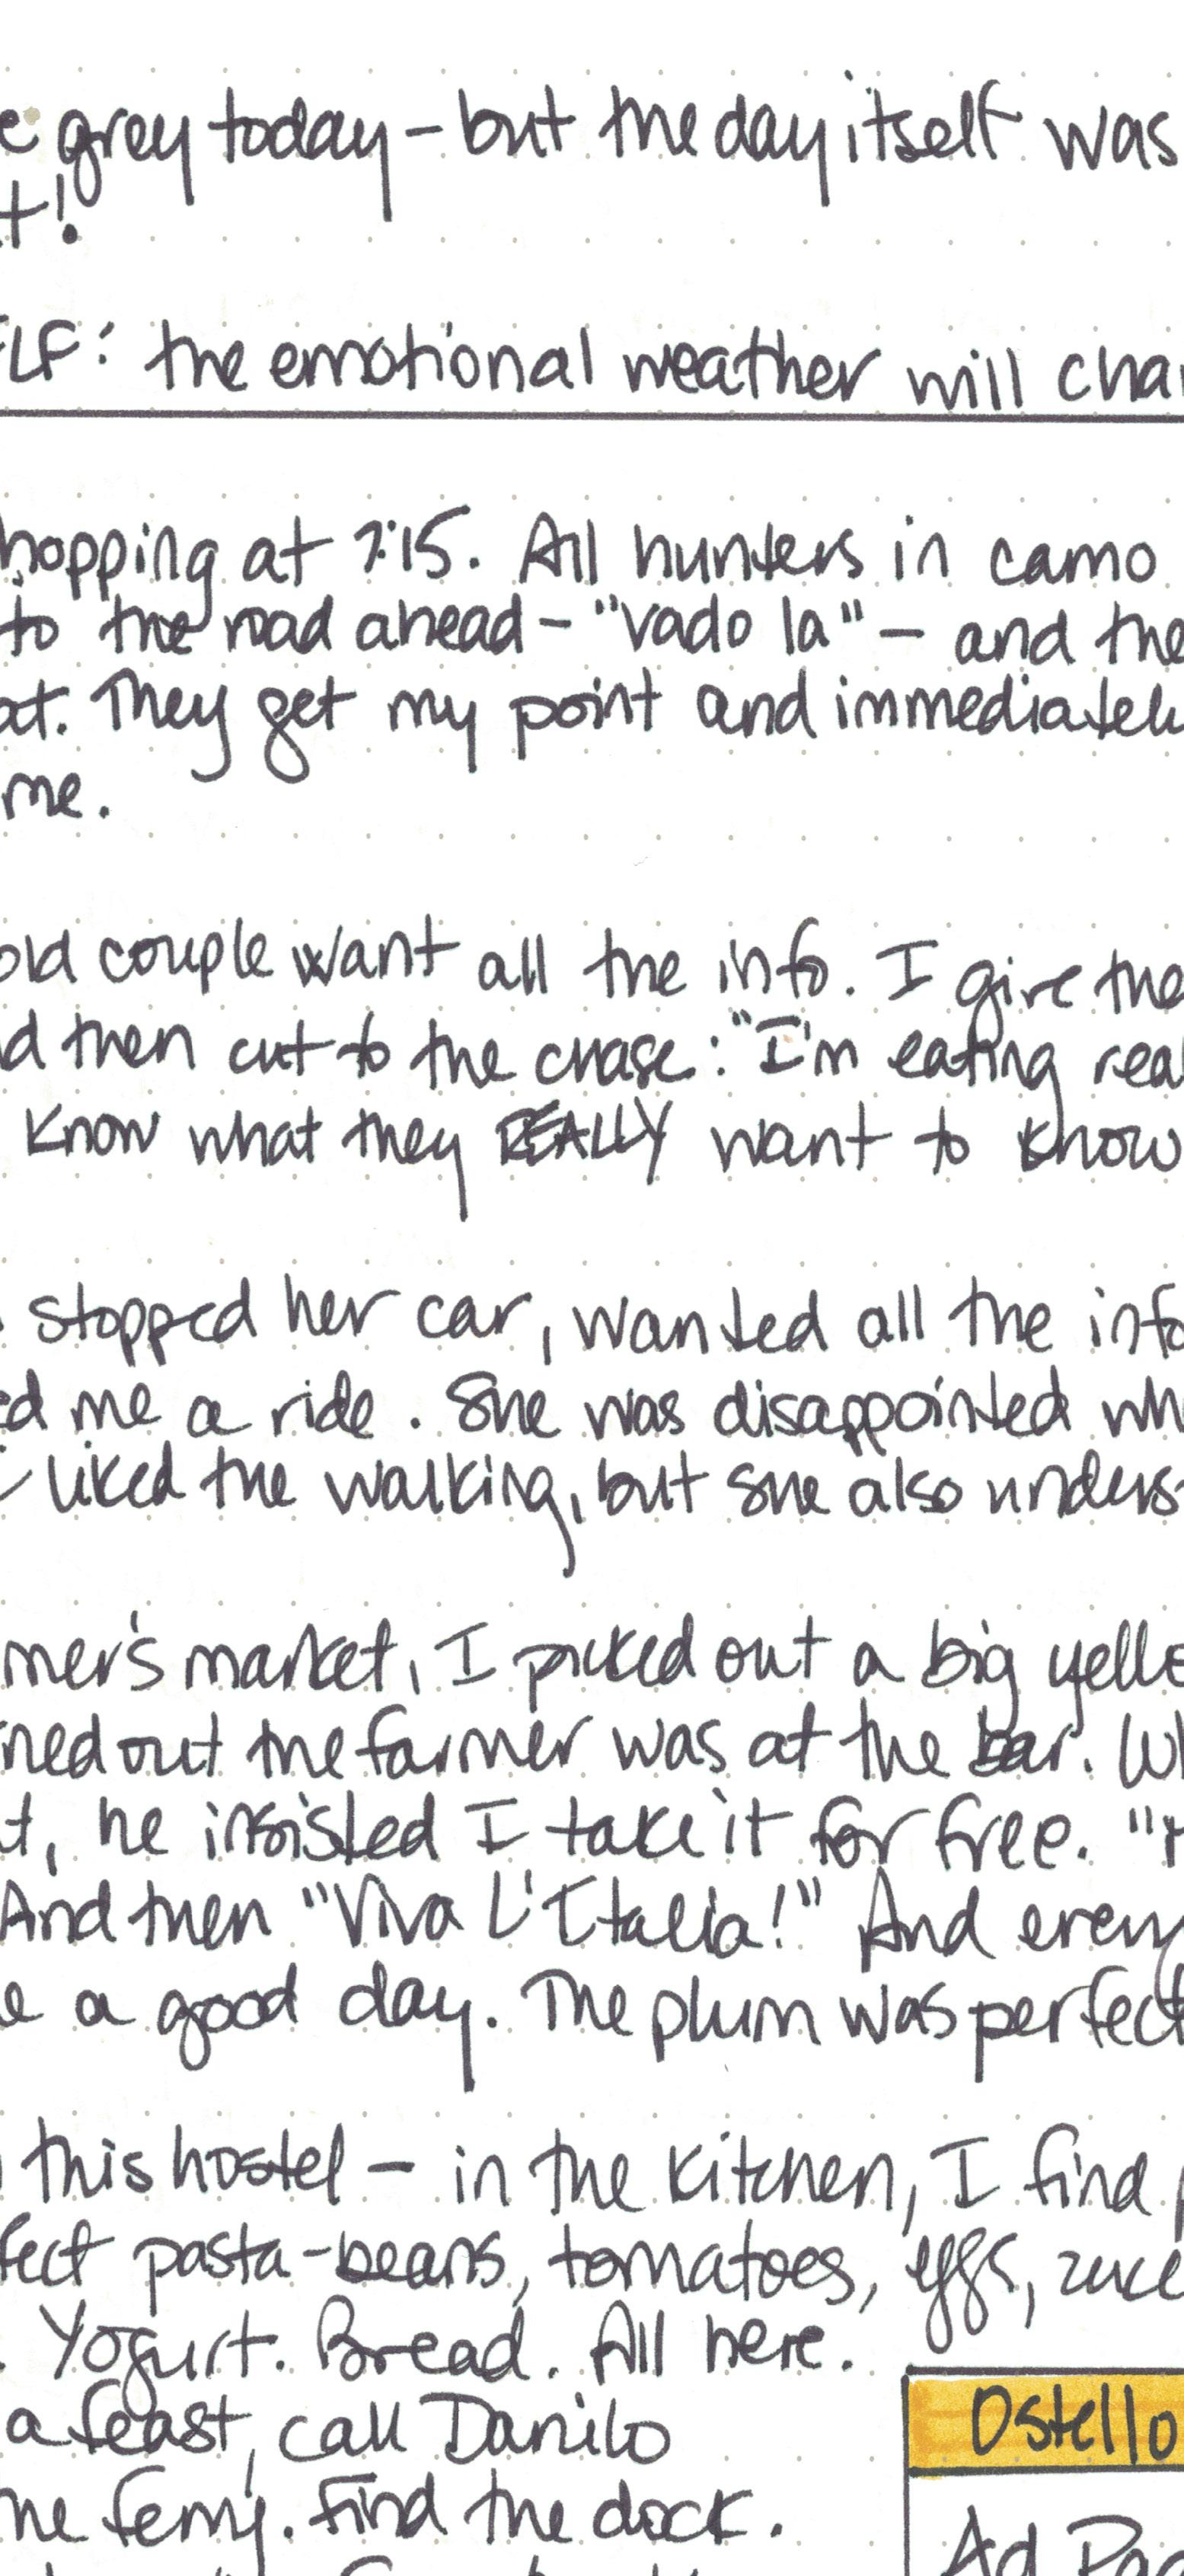 e grey today - but the day itself was
t!
ELF: the emotional weather will chan
hopping at 7:15. All hunters in camo
to the road ahead - "vado la" - and the
at. They get my point and immediately
me.
old couple want all the info. I give the
d then cut to the chase: "I'm eating real
know what they REALLY want to know
stopped her car, wanted all the info
ed me a ride. She was disappointed whe
I liked the walking, but she also unders
mer's market, I picked out a big yello
ned out the farmer was at the bar. Wh
t, he insisted I take it for free. "
And then "Viva L'Italia!" And every
e a good day. The plum was perfect
this hostel - in the kitchen, I find p
fect pasta - beans, tomatoes, eggs, zucc
. Yogurt. Bread. All here.
a feast, call Danilo
he ferry. Find the dock.
Ostello
Ad Pad